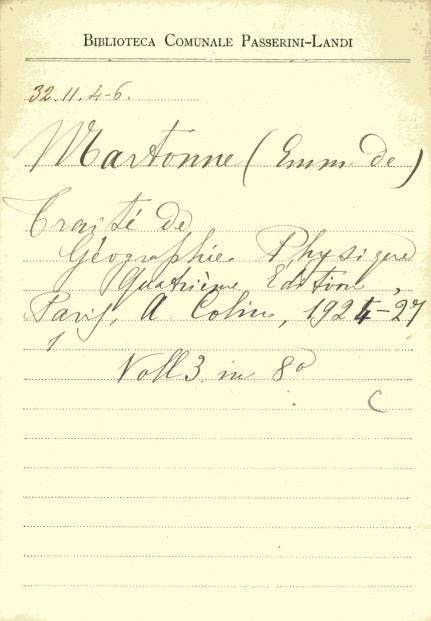 BIBLIOTECA COMUNALE PASSERINI-LANDI
32.11.4-6.
Martonne (Emm. de)
Traité de
Géographie Physique
Quatrième Edition,
Paris, A Colin, 1925-27
Voll 3 in 8º
C